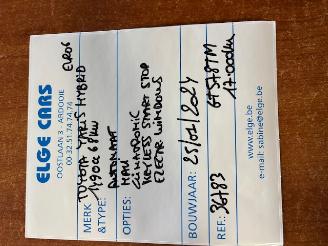 ELGE CARS
OOSTLAAN 3 - ARDOOIE
00.32.51.74.74.74
EURO6
MERK TOYOTA YARIS HYBRID
& TYPE: 1490cc 68kW
AUTOMAAT
OPTIES: CLIMATRONIC
KEYLESS START STOP
ELECTR WINDOWS
BOUWJAAR: 25/01/2024
REF.: 36783
17.000km
www.elge.be
e-mail: sabine@elge.be